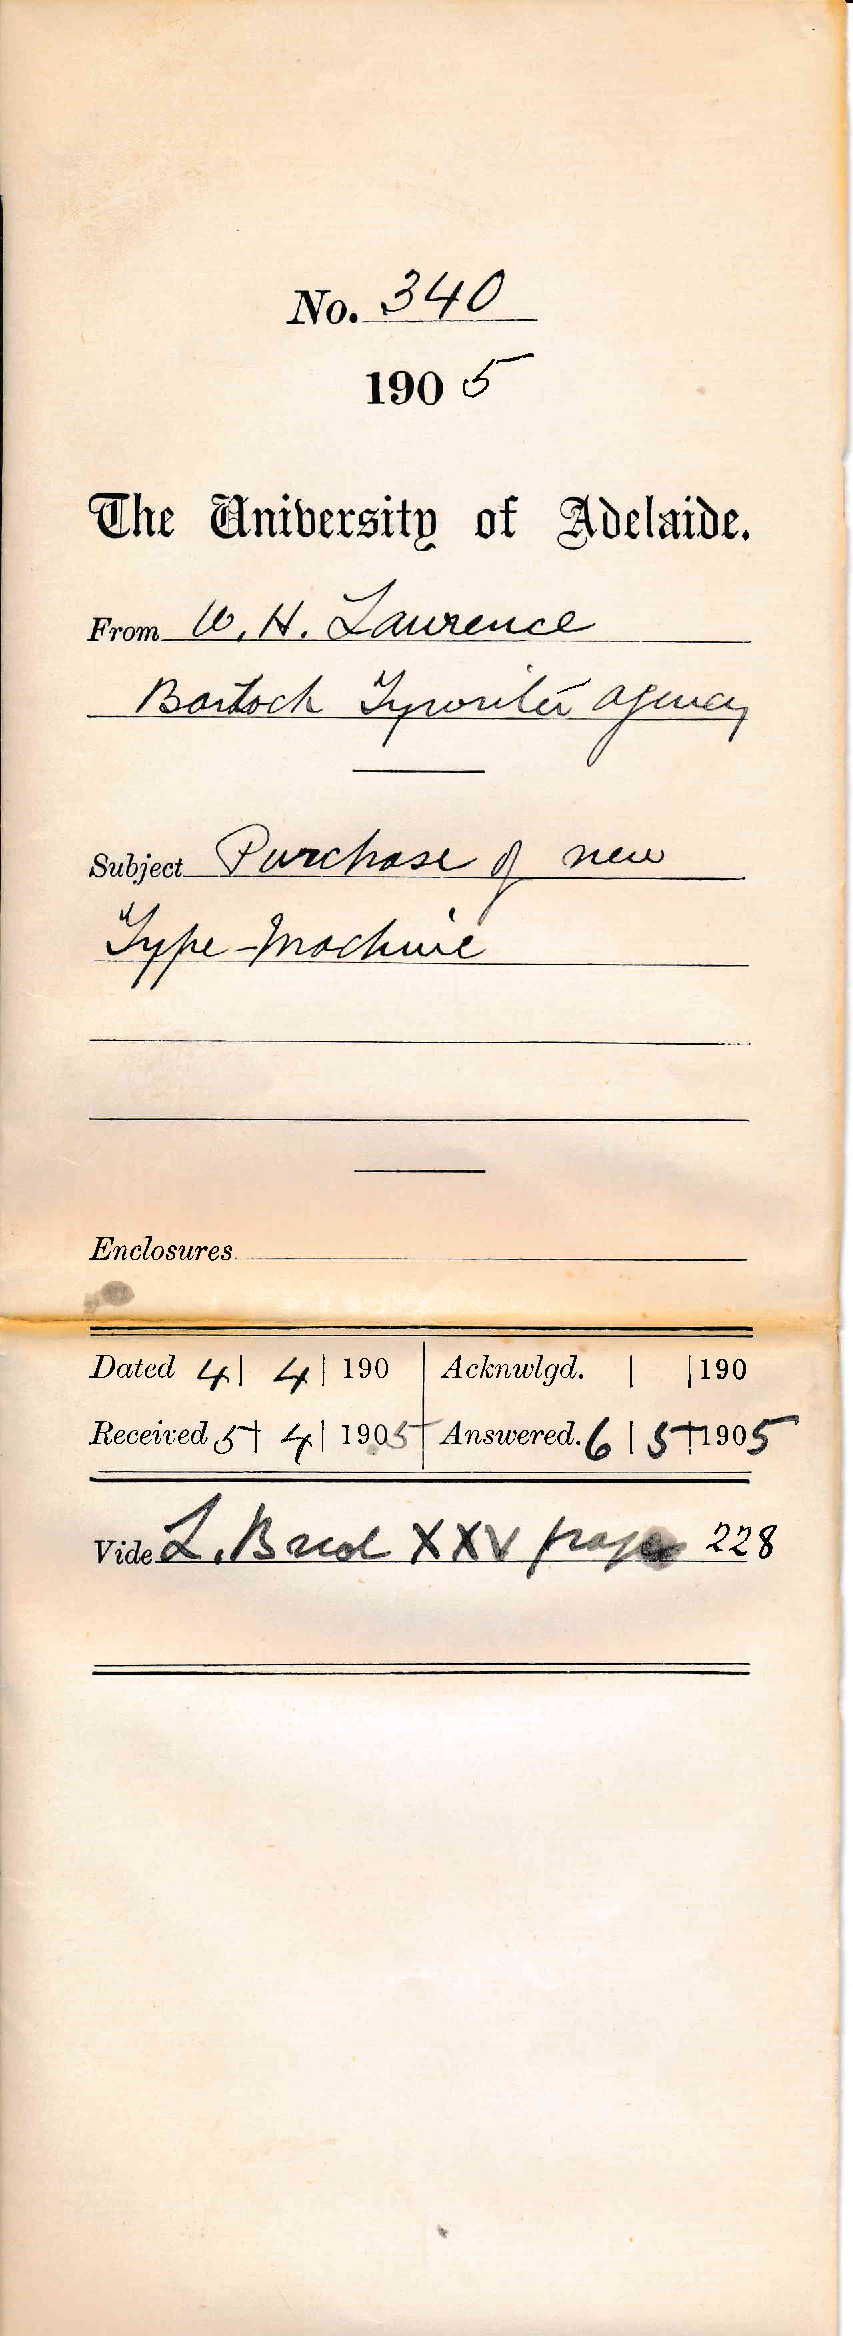 No. 340
1905
The University of Adelaide.
From W. H. Laurence
Bartoch Typwriter agency
Subject Purchase of new
Type-Machine
Enclosures
Dated 4 | 4 | 190 Acknwlgd. | | 190
Received 5 | 4 | 1905 Answered. 6 | 5 | 1905
Vide L. Book XXV page 228